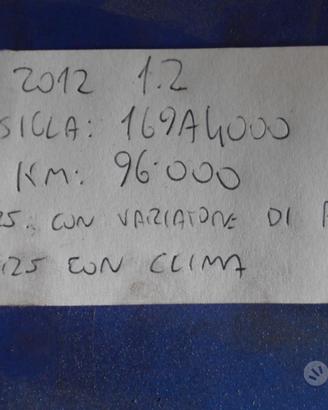 2012 1.2
SIGLA: 169A4000
KM: 96.000
25. CON VARIATORE DI
125 EON CLIMA